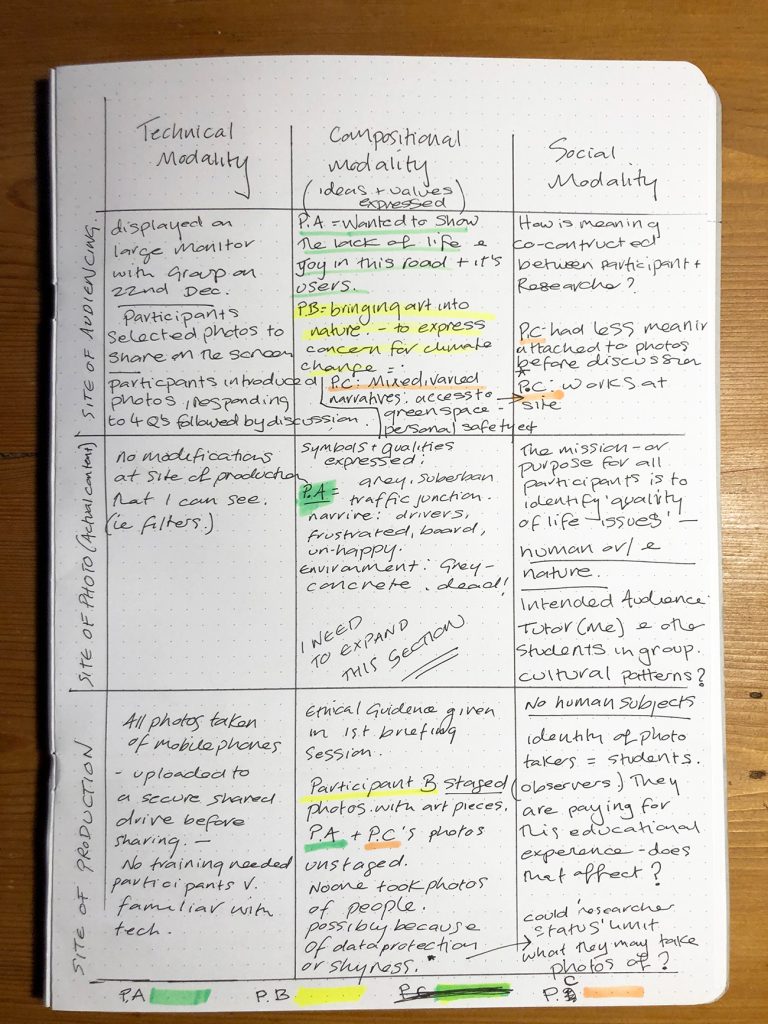 Technical
Modality
Compositional
Modality
(ideas + values
expressed)
Social
Modality
SITE OF AUDIENCING.
displayed on
large monitor
with Group on
22nd Dec.
Participants
selected photos to
share on the screen
participants introduced
photos, responding
to 4 Q's followed by discussion.
P.A = Wanted to show
the lack of life &
joy in this road + it's
users.
P.B = bringing art into
nature. - to express
concern for climate
change =.
P.C: Mixed/varied
narratives: access to
greenspace -
personal safety
How is meaning
co-constructed
between participant +
Researcher?
P.C - had less meanin
attached to photos
before discussion
* P.C: works at
site
SITE OF PHOTO (Actual content)
no modifications
at site of production
that I can see.
(ie filters.)
Symbols + qualities
expressed:
P.A = grey, suberban
traffic junction.
drivers,
frustrated, board,
un-happy.
Environment: Grey-
concrete. dead!
I NEED
TO EXPAND
THIS SECTION
The mission - or
purpose for all
participants is to
identify 'quality
of life - issues' -
human or/&
nature.
Intended Audience:
Tutor (me) & othe
students in group.
cultural patterns?
SITE OF PRODUCTION
All photos taken
of mobile phones
- uploaded to
a secure shared
drive before
sharing. -
No training needed
participants v.
familiar with
tech.
Ethical Guidence given
in 1st briefing
session.
Participant B staged
photos with art pieces.
P.A + P.C's photos
unstaged.
Noone took photos
of people.
possibly because
of data protection
or shyness. *
No human subjects
identity of photo
takers = students.
(observers.) They
are paying for
this educational
experience - does
that affect?
could 'researcher
status' limit
what they may take
photos of?
P.A
P.B
P.C
P.C